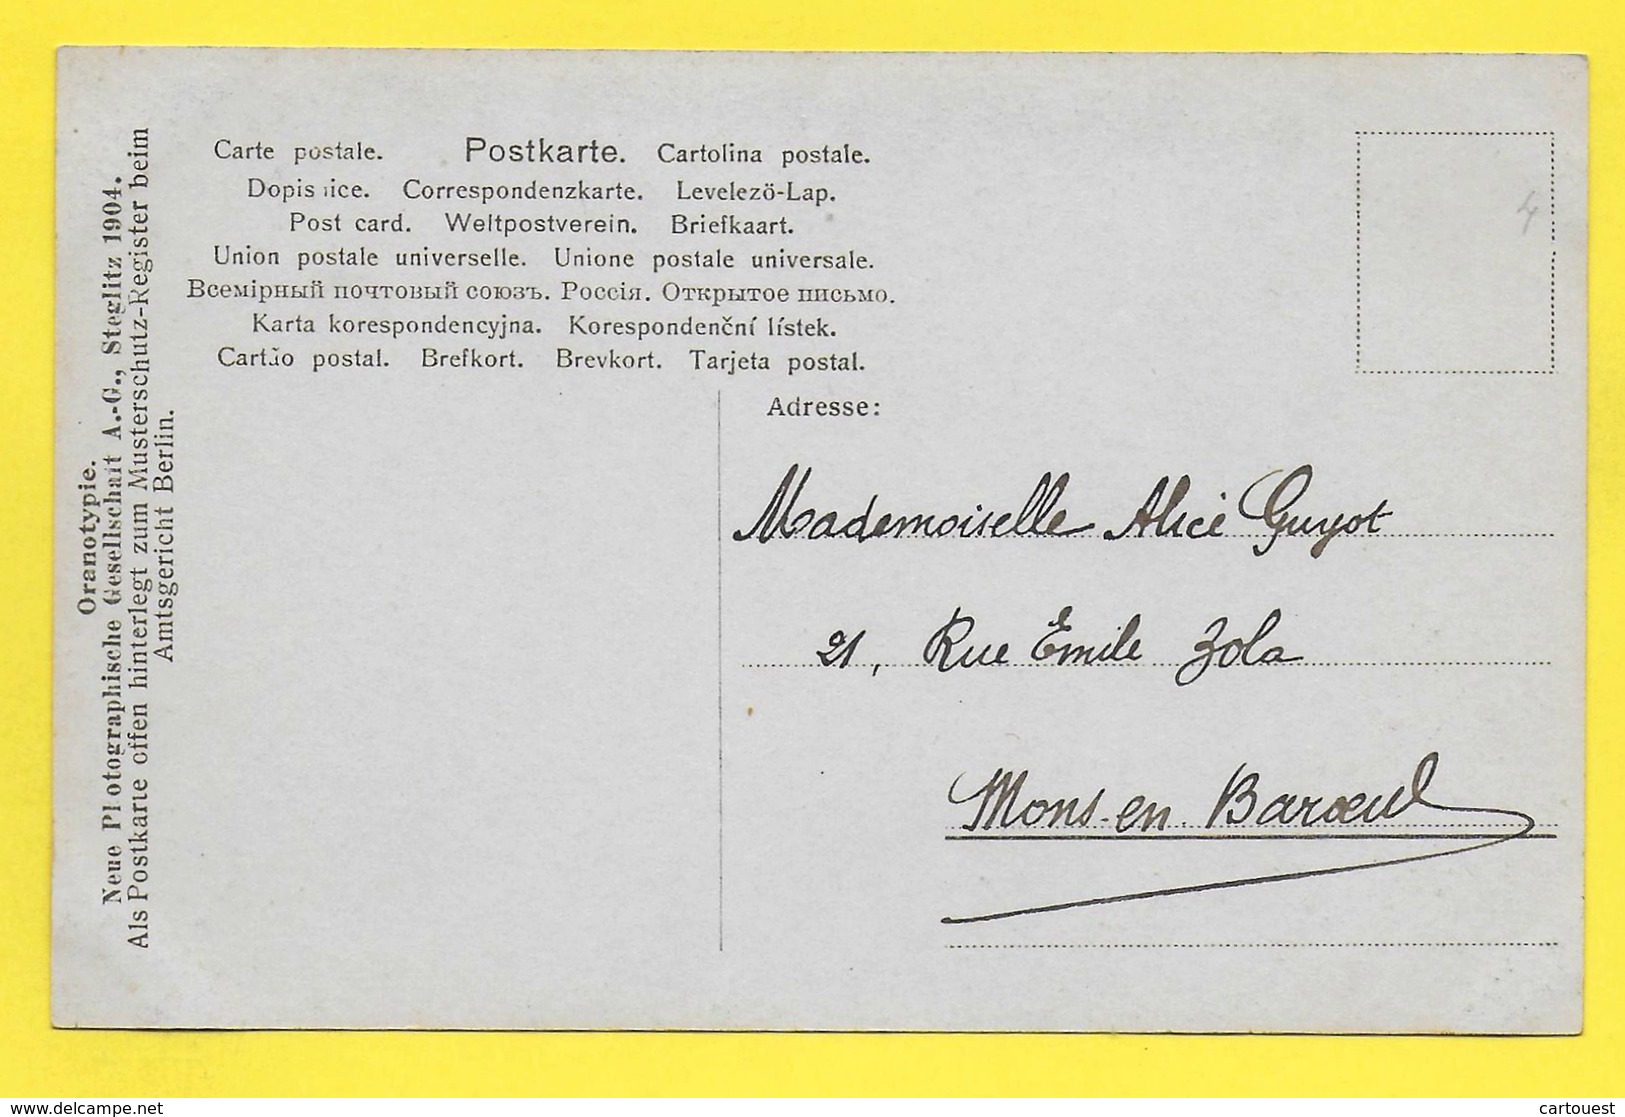 Carte postale. Postkarte. Cartolina postale.
Dopisnice. Correspondenzkarte. Levelezö-Lap.
Post card. Weltpostverein. Briefkaart.
Union postale universelle. Unione postale universale.
Всемірный почтовый союзъ. Россія. Открытое письмо.
Karta korespondencyjna. Korespondenční lístek.
Cartão postal. Brefkort. Brevkort. Tarjeta postal.
Oranotypie.
Neue Photographische Gesellschaft A.-G., Steglitz 1904.
Als Postkarte offen hinterlegt zum Musterschutz-Register beim
Amtsgericht Berlin.
4
Adresse:
Mademoiselle Alice Guyot
21, Rue Emile Zola
Mons-en-Barœul
www.delcampe.net
cartouest